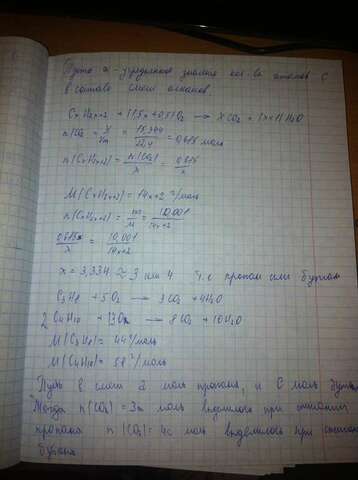 Пусть x - усредненное значение кол-ва атомов C
в составе смеси алканов.
CxH2x+2 + (1,5x+0,5)O2 → xCO2 + (x+1)H2O
n(CO2) = V/Vm = /22,4 = 0,685 моль
n(CxH2x+2) = n(CO2)/x = 0,685/x
M(CxH2x+2) = 14x+2 г/моль
n(CxH2x+2) = m/M = 10,001/14x+2
0,685/x = 10,001/14x+2
x = 3,334 ≈ 3 или 4 т.е пропан или бутан
C3H8 + 5O2 → 3CO2 + 4H2O
2 C4H10 + 13O2 → 8CO2 + 10H2O
M(C3H8) = 44 г/моль
M(C4H10) = 58 г/моль
Пусть в смеси а моль пропана, и с моль бутана
Тогда n(CO2) = 3а моль выделилось при сжигании
пропана n(CO2) = 4с моль выделилось при сжигании
бутана